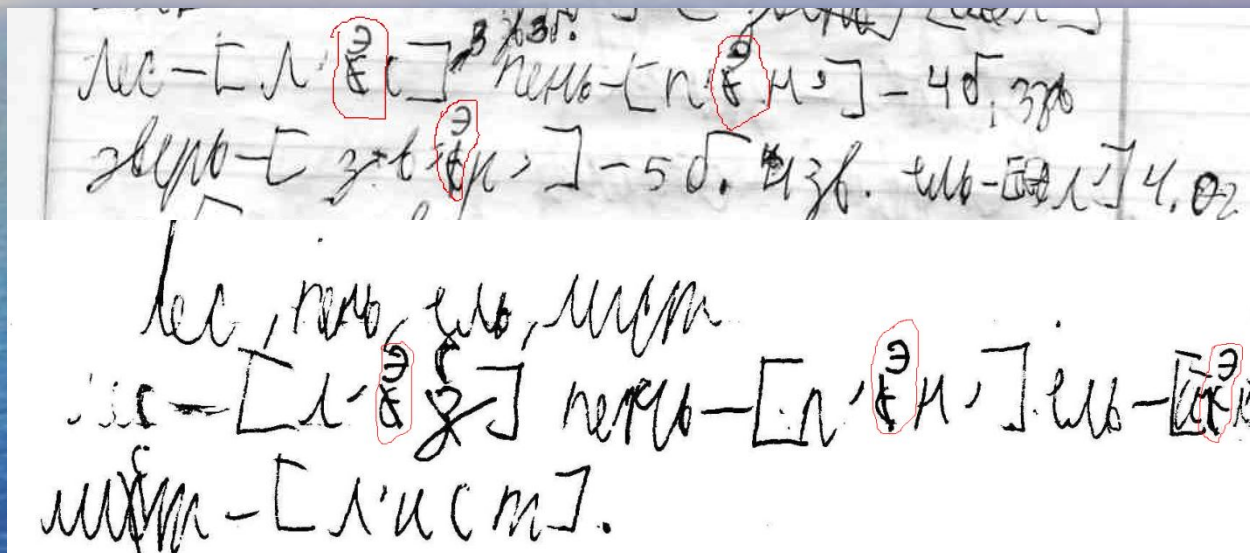 лес – [л' э с] 3 зв. пень – [п' э н'] – 4 б, 3 зв
зверь – [з' в' э р'] – 5 б. 4 зв. ель – [йэл'] 4.
Лес, пень, ель, лист
лес – [л' э с] пень – [п' э н'] ель – [й э
лист – [л' и с т].